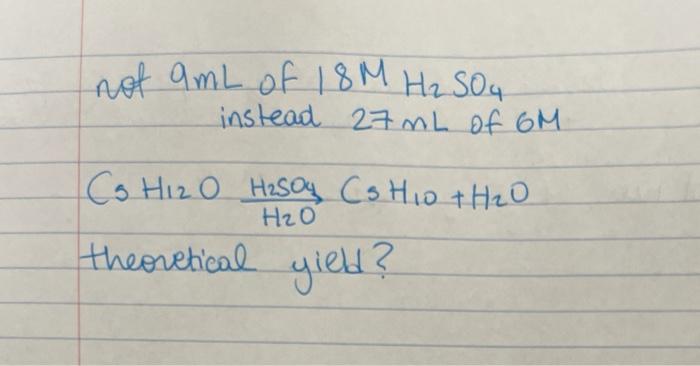 not 9mL of 18M H2SO4
instead 27mL of 6M
C5H12O H2SO4 C5H10 + H2O
H2O
theoretical yield?